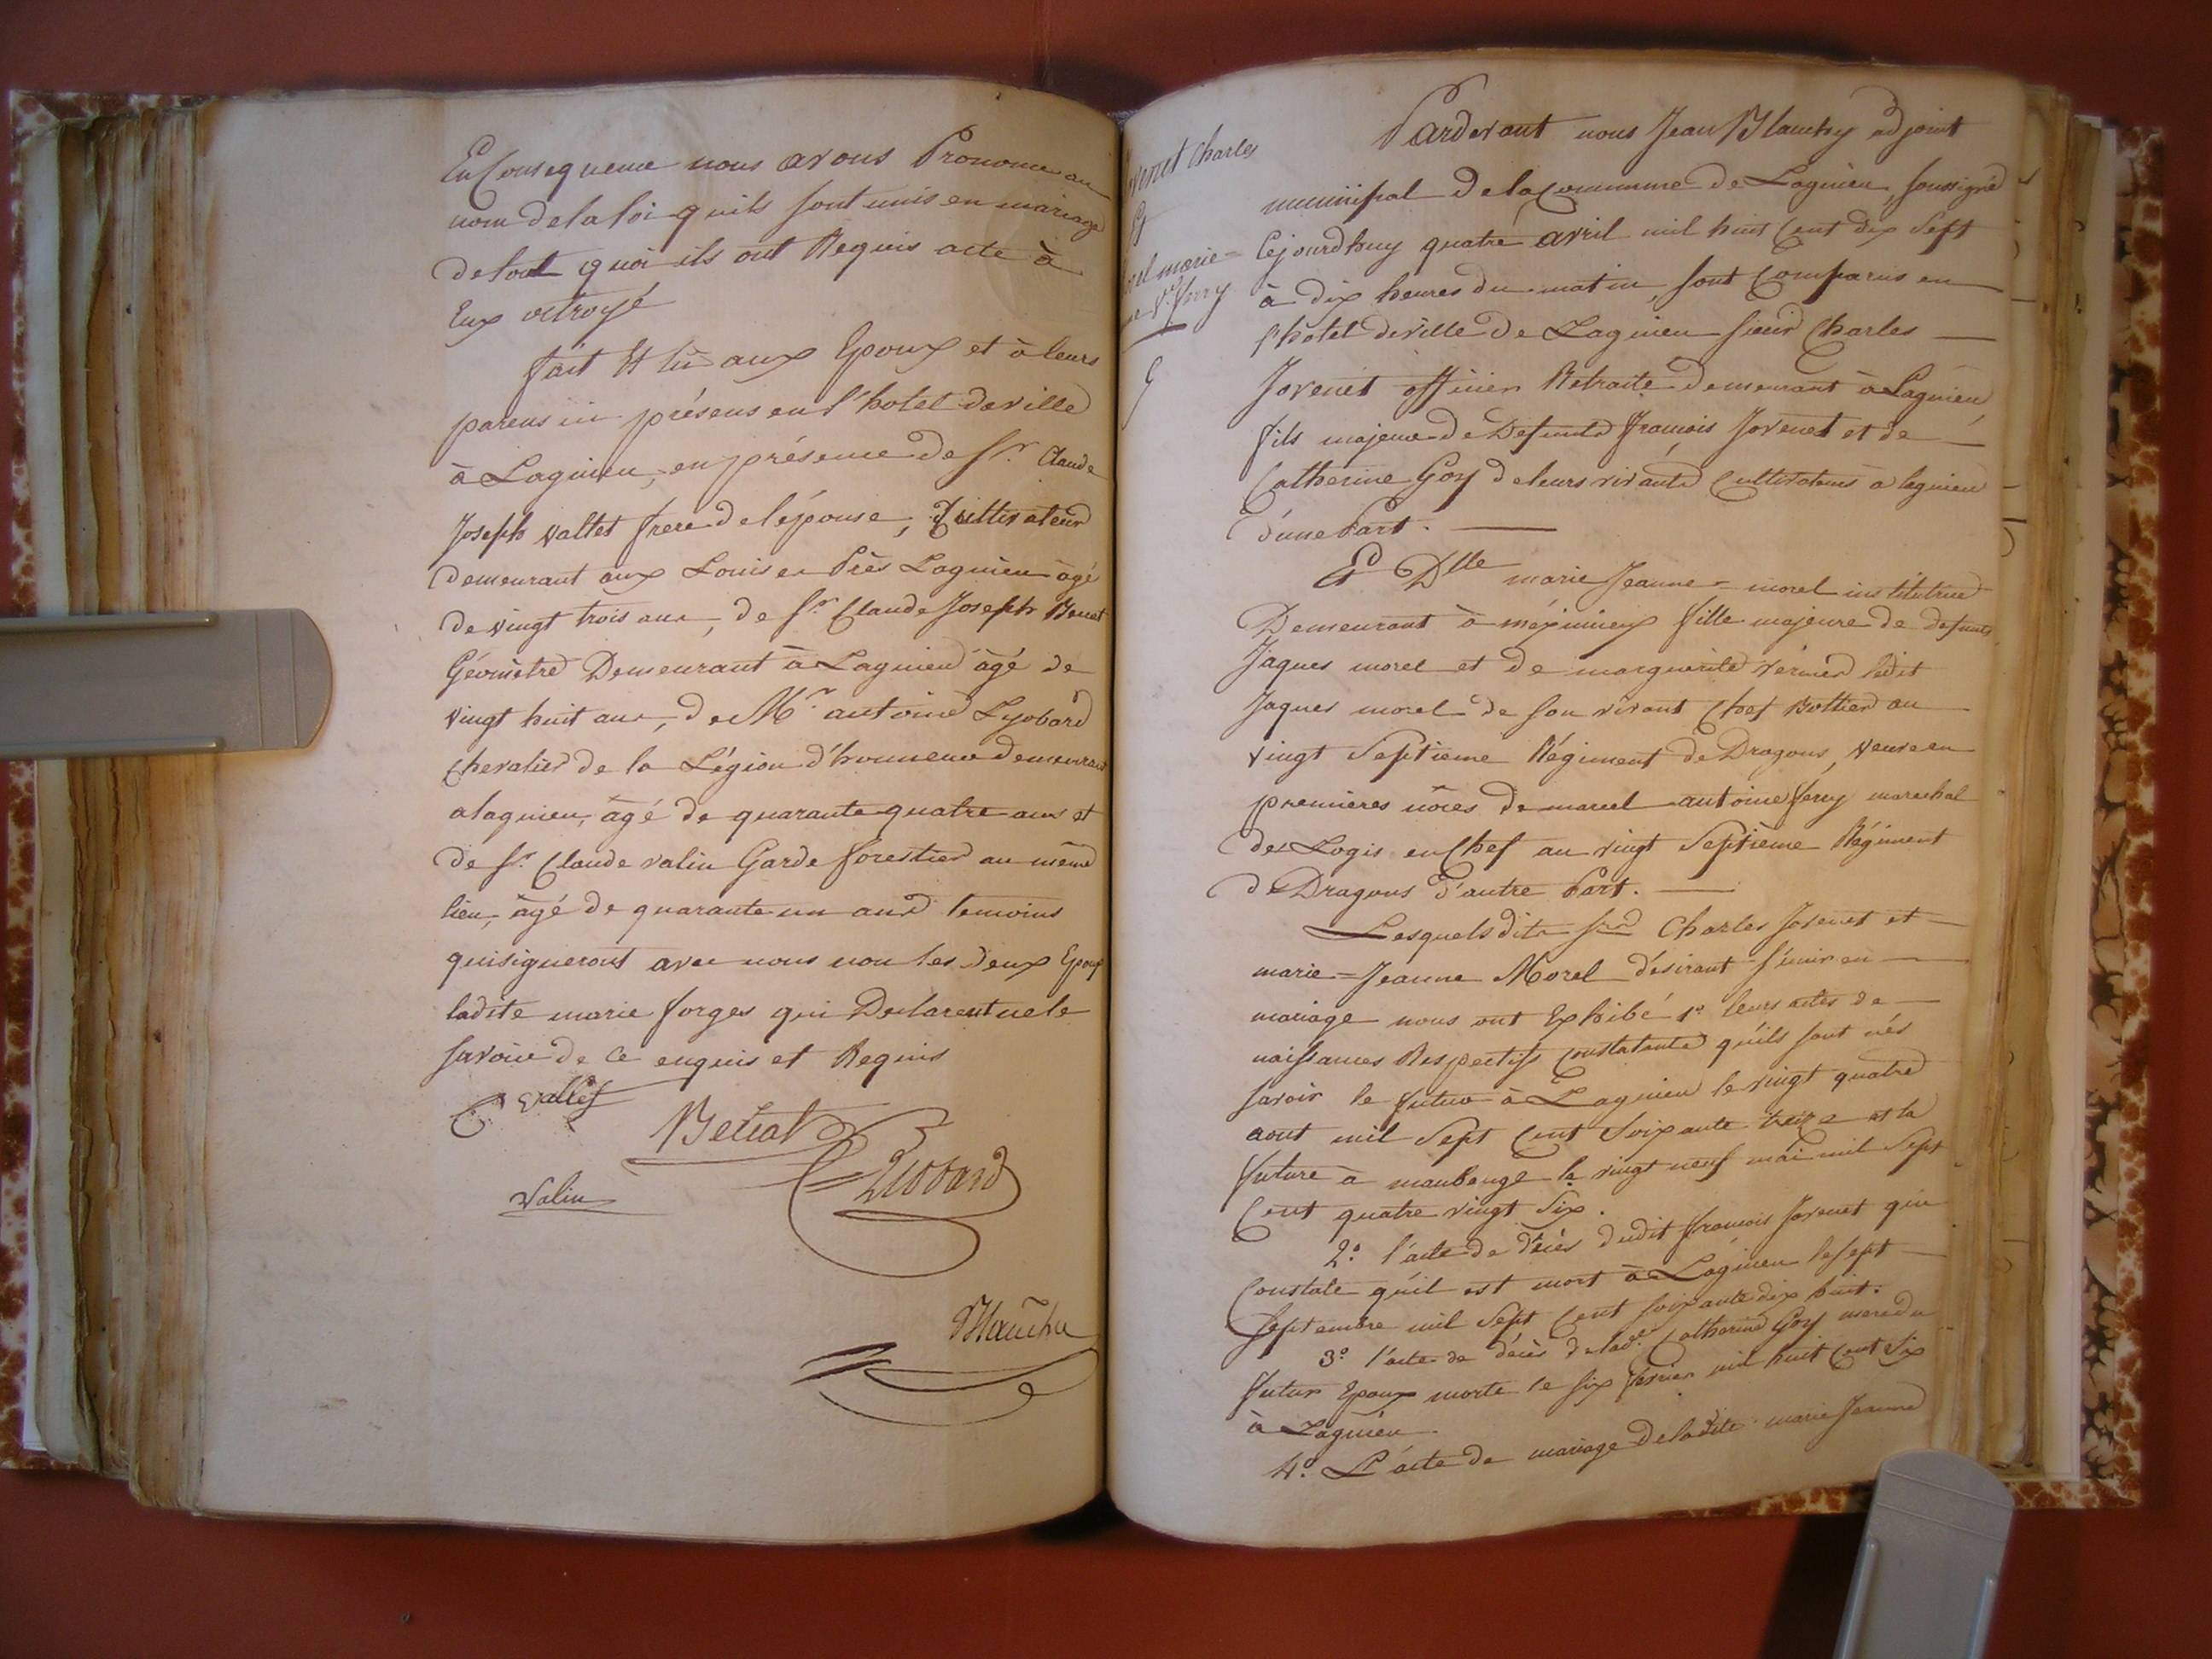 En Consequence nous avons Prononcé au
nom de la loi quils sont unis en mariage
de tout quoi ils ont Requis acte à
Eux octroyé
fait Et lû aux Epoux et à leurs
parens ici présens en l'hotel de ville
à Lagnieu, en présence de Sr. Claude
Joseph vallet frere de lépouse, Cultivateur
demeurant aux Louises Près Lagnieu âgé
de vingt trois ans, de Sr. Claude Joseph
Géomètre Demeurant à Lagnieu âgé de
vingt huit ans, de Mr. antoine Lyobard
chevalier de la Légion d'honneur demeurant
a lagnieu, âgé de quarante quatre ans et
de Sr. Claude valin Garde forestier au même
lieu, âgé de quarante un ans temoins
qui signeront avec nous non les deux Epoux
ladite marie forges qui Declarent ne le
savoir de ce enquis et Requis
C vallet
Lyobard
valin
Blanchy
Jovenet Charles
Et
morel marie=
ve. ferry
Pardevant nous Jean Blanchy adjoint
municipal de la Commune de Lagnieu, soussigné
Cejourdhuy quatre avril mil huit Cent dix Sept
à dix heures du matin, sont Comparus en
l'hotel de ville de Lagnieu sieur Charles
Jovenet officier Retraité demeurant à Lagnieu
fils majeur de Defunts françois Jovenet et de
Catherine Goy de leurs vivants Cultivateurs a lagnieu
d'une Part.
Et Dlle marie Jeanne= morel institutrice
Demeurant à méximieux fille majeure de defunts
Jaques morel et de marguerite ledit
Jaques morel de son vivant Chef Bottier au
vingt Septieme Régiment de Dragons, veuve en
premières nôces de marcel antoine ferry marechal
des Logis en Chef au vingt Septième Régiment
de Dragons d'autre Part.
Lesquels dits Srs Charles Jovenet et
marie=Jeanne Morel désirant s'unir en
mariage nous ont Exhibé 1º leurs actes de
naissances Respectifs constatants quils sont nés
savoir le futur à Lagnieu le vingt quatre
aout mil Sept Cent Soixante treize et la
future à maubeuge le vingt neuf mai mil Sept
Cent quatre vingt Six.
2º. l'acte de décès dudit françois Jovenet qui
Constate qu'il est mort à Lagnieu le sept
Septembre mil Sept Cent soixante dix huit.
3º. l'acte de décès de lade. Catherine Goy mere du
futur Epoux morte le six fevrier mil huit Cent Six
à Lagnieu.
4º. L'acte de mariage de ladite marie Jeanne